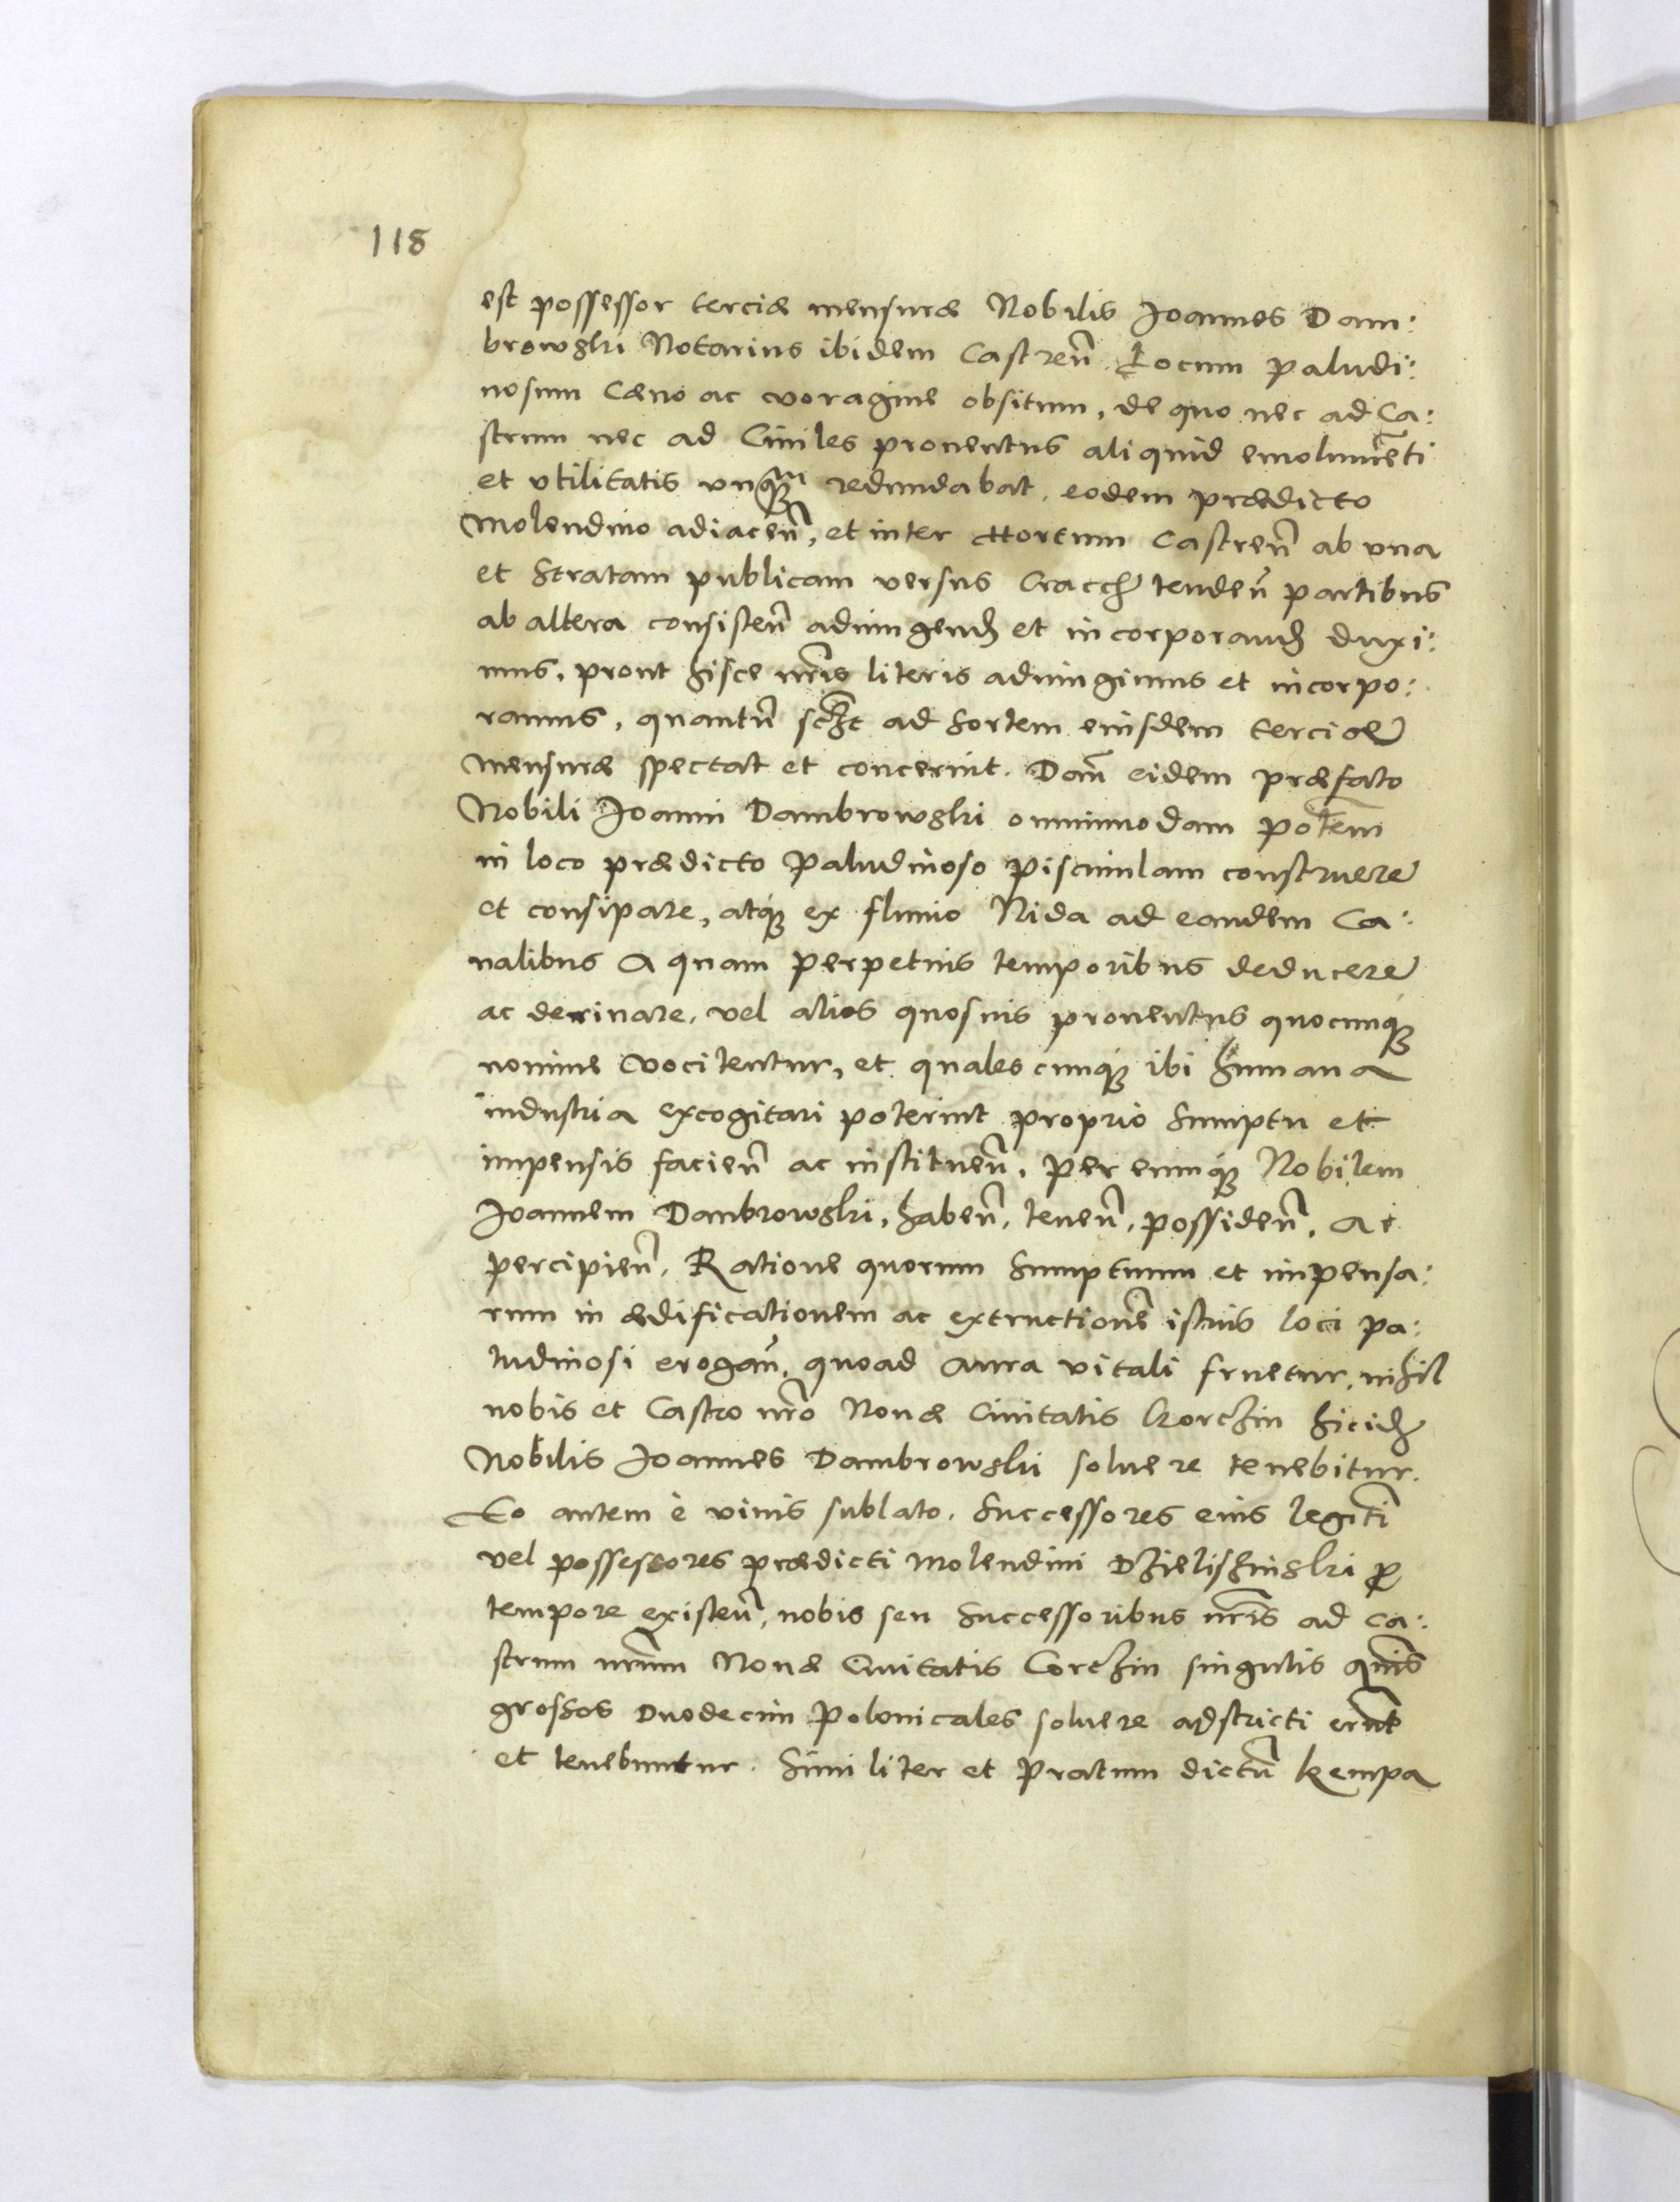 118
est possessor terciæ mensuræ Nobilis Joannes Dam:
browski Notarius ibidem Castren̄. Locum paludi:
nosum Cœno ac voragine obsitum, de quo nec ad Ca:
strum nec ad Ciuiles prouentus aliquid emolumēti
et vtilitatis vnqꝫm redundabat, eodem prædicto
Molendino adiacen̄, et inter Hortum Castren̄ ab vna
et Stratam publicam versus Cracch tenden̄ partibus
ab altera consisten̄ adiungend et incorporand duxi:
mus, prout hisce nr̄is literis adiungimus et incorpo:
ramus, quantū sclt ad Sortem eiusdem terciæ
mensuræ spectat et concernit. Dan̄ eidem præfato
Nobili Joanni Dambrowski omnimodam potem̄
in loco prædicto Paludinoso Piscinulam construere
et consipare, atqꝫ ex fluuio Nida ad eandem Ca:
nalibus Aquam perpetuis temporibus deducere
ac deriuare, vel alios quosuis prouentus quocunqꝫ
nomine vocitentur, et qualescunqꝫ ibi humana
industria excogitari poterint proprio Sumptu et
impensis facien̄ ac instituen̄, per eumqꝫ Nobilem
Joannem Dambrowski, haben̄, tenen̄, possiden̄, ac
percipien̄. Ratione quorum Sumptuum et impensa:
rum in ædificationem ac extructionē istius loci pa:
ludinosi erogan̄, quoad aura vitali fruetur, nihil
nobis et Castro nr̄o Nouæ Ciuitatis Korczin hicid
Nobilis Joannes Dambrowski soluere tenebitur.
Eo autem è viuis sublato, Successores eius legiti
vel possessores prædicti Molendini Dzielishinski ꝓ
tempore existen̄, nobis seu Successoribus nr̄is ad Ca:
strum nr̄um Nouæ Ciuitatis Corczin singulis
grossos Duodecim Polonicales soluere adstricti erūt
et tenebuntur. Similiter et Pratum dictū Kempa